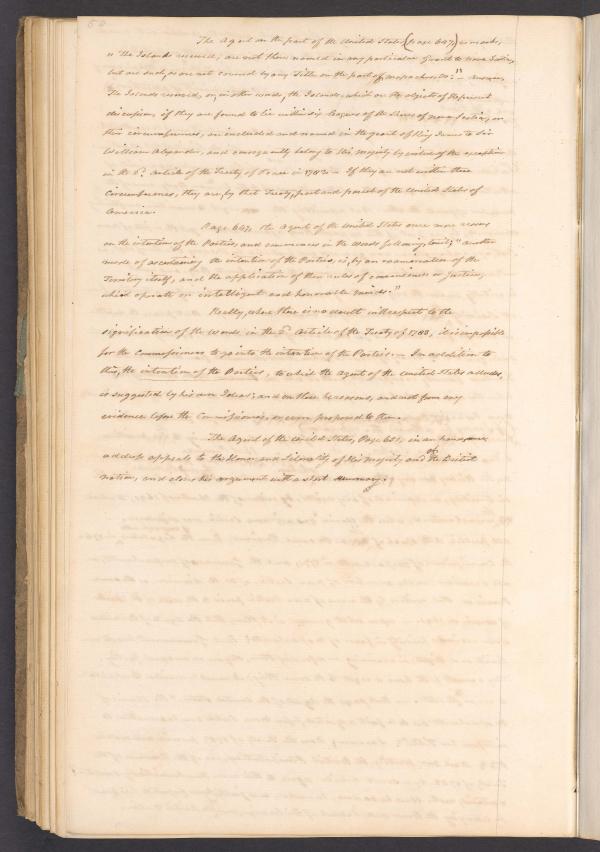 The Agent on the part of the United States (page 647) remarks,
"The Islands reserved, are not those named in any particular Grant to Nova Scotia,
but are such, as are not covered by any Title on the part of Massachusetts:"— Answer,
The Islands reserved, or, in other words, the Islands, which are the objects of the present
discussion, if they are found to lie within six leagues of the Shores of Nova Scotia, are
this circumstances, are included and named in the grant of King James to Sir
William Alexander, and consequently belong to His Majesty by virtue of the exception
in the 2d. Article of the Treaty of Peace in 1783 — If they are not within these
Circumstances, they are, by that Treaty, part and parcel of the United States of
America.
Page 647, the Agent of the United States once more recurs
on the intention of the Parties, and commences in the words following, to wit; "another
mode of ascertaining the intention of the Parties, is, by an examination of the
Territory itself, and the application of those rules of convenience or justice,
which operate on intelligent and honorable minds."
Really, where there is no doubt with respect to the
signification of the words, in the 2d. Article of the Treaty of 1783, it is impossible
for the Commissioners to go into the intention of the Parties.— In addition to
this, the intention of the Parties, to which the Agent of the United States alludes,
is suggested by his own Ideas; and on those he reasons, and not from any
evidence before the Commissioners, or even proposed to them.
The Agent of the United States, Page 651, in an
address appeals to the Honor and Liberality of His Majesty and of the British
nation, and closes his argument with a short summary.